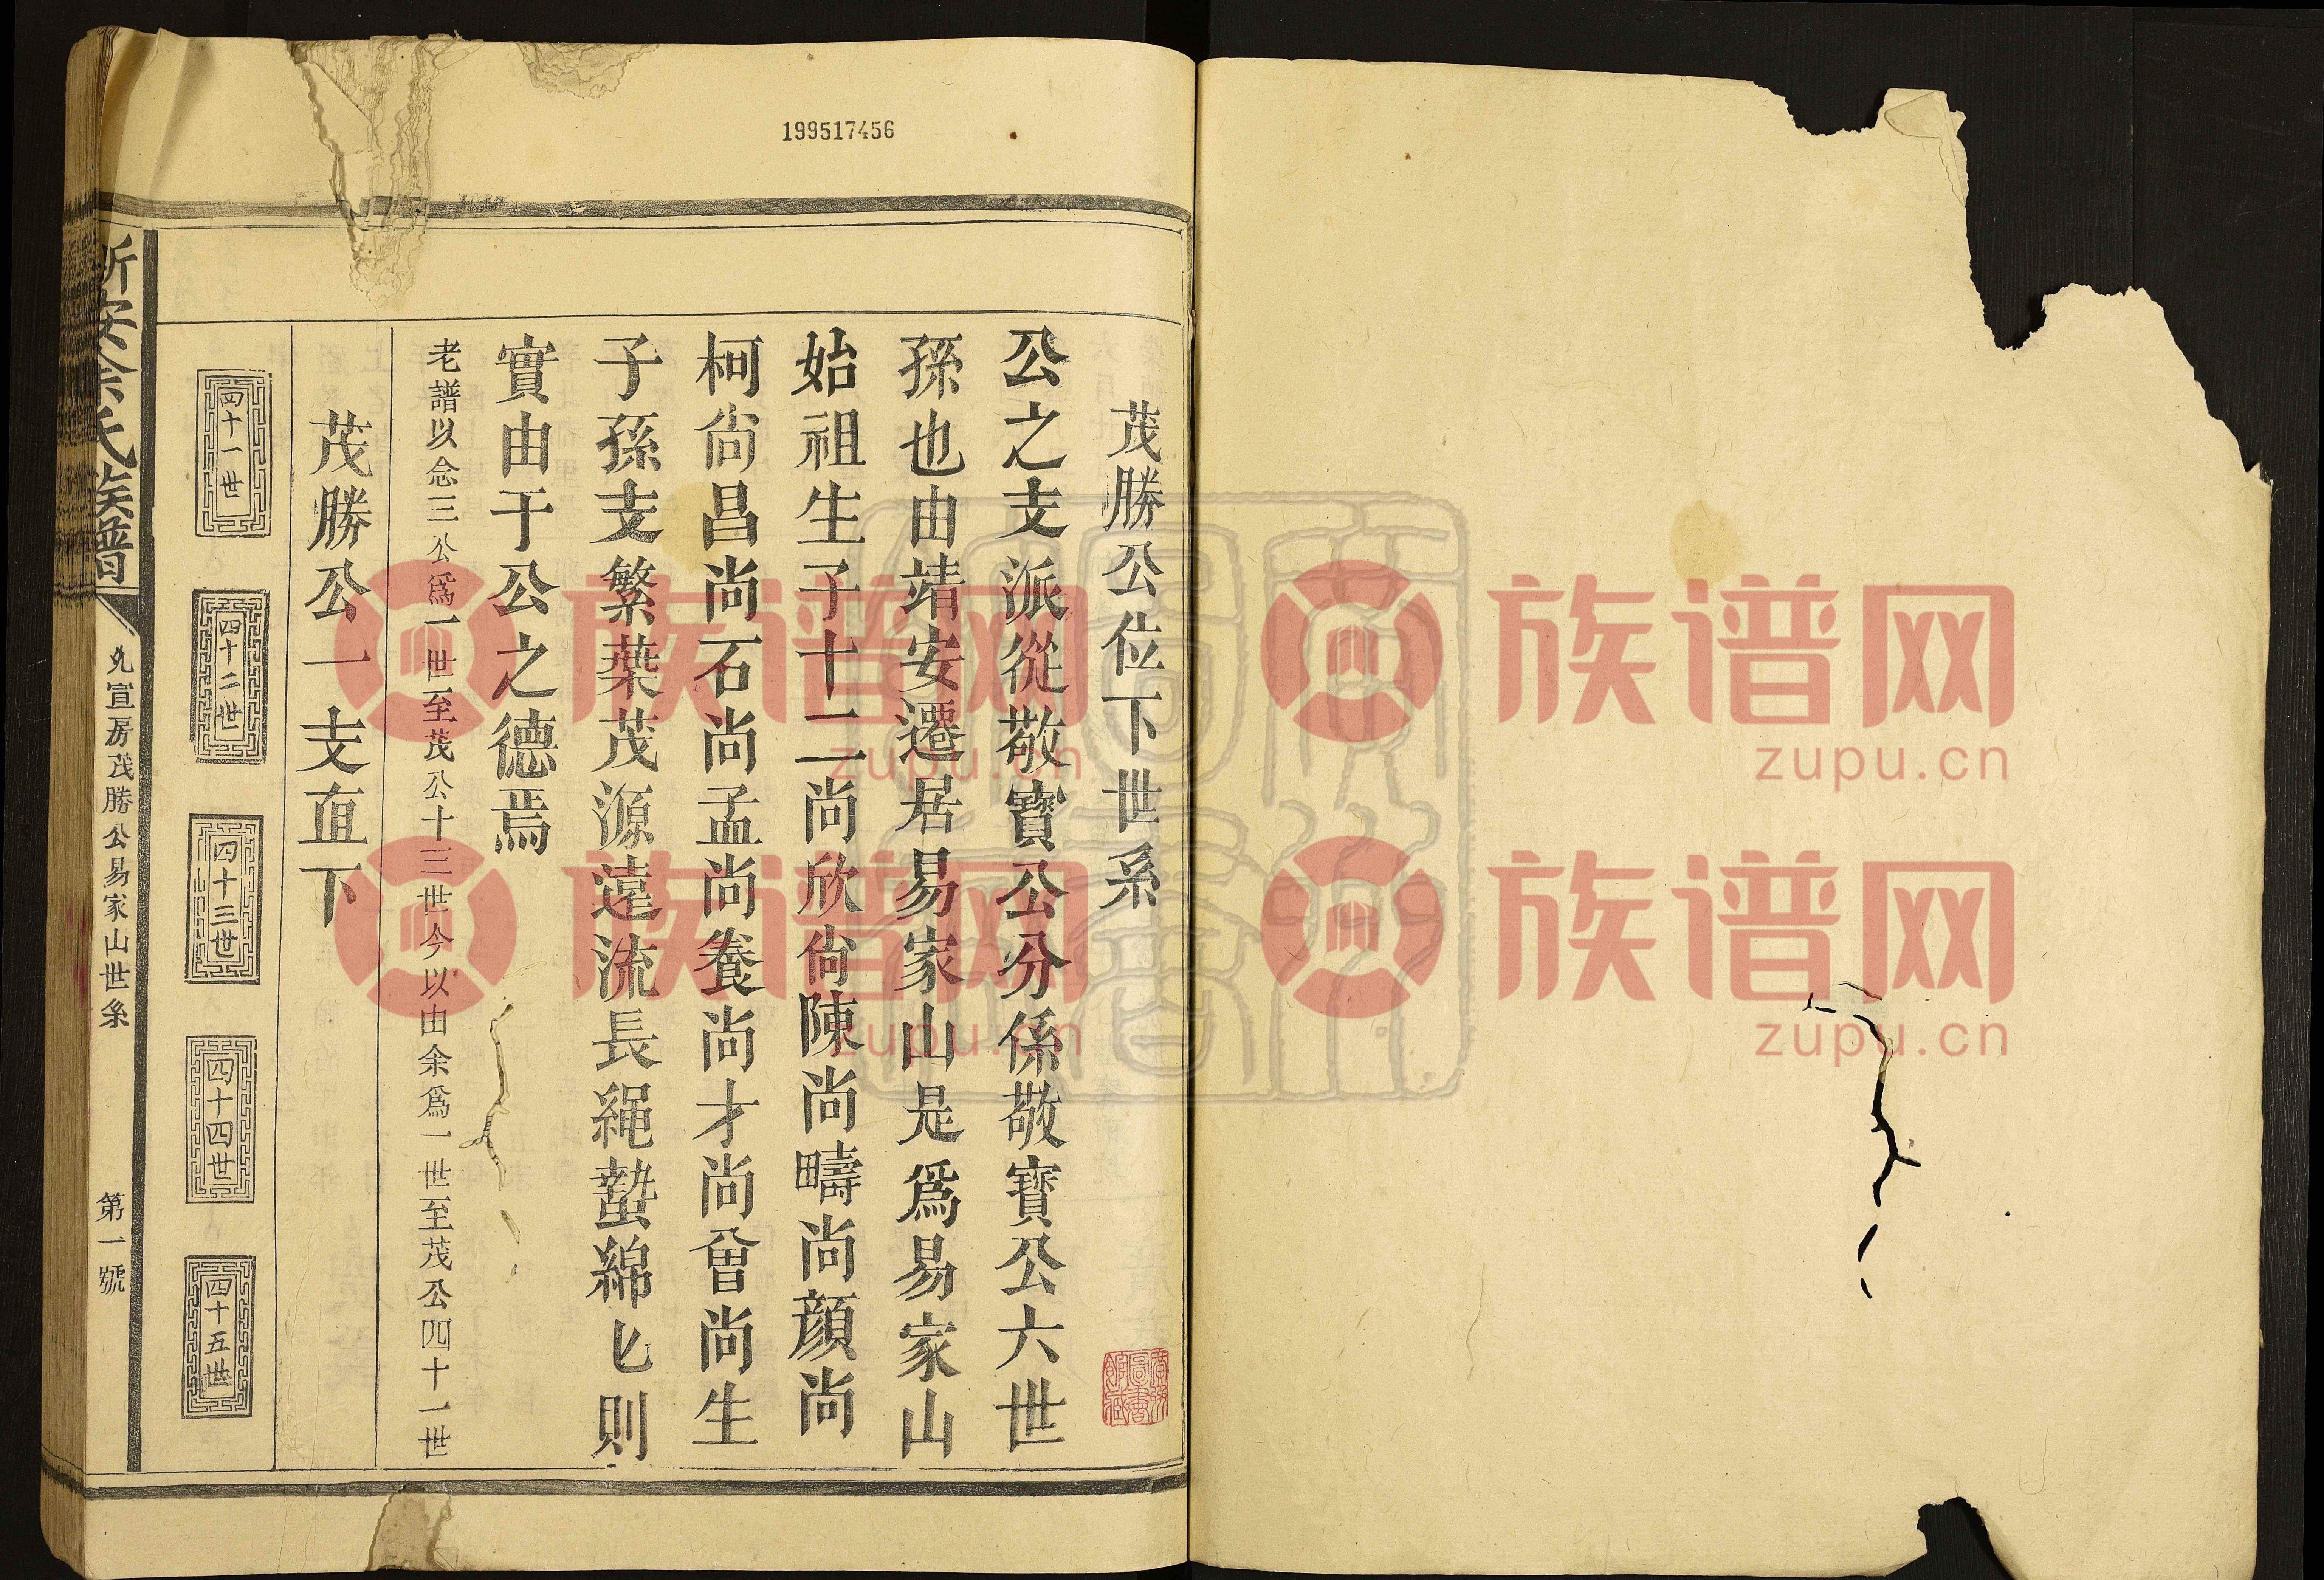 199517456
茂勝公位下世系
公之支派從敬寶公分係敬寶公六世
孫也由靖安遷居易家山是爲易家山
始祖生子十二尚欣尚陳尚疇尚顔尚
柯尚昌尚石尚孟尚養尚才尚曾尚生
子孫支繁葉茂源遠流長繩蟄綿匕則
實由于公之德焉
老譜以念三公爲一世至茂公十三世今以由余爲一世至茂公四十一世
茂勝公一支直下
四十一世
四十二世
四十三世
四十四世
四十五世
新安余氏族譜
宣房茂勝公易家山世系
第一號
族谱网
zupu.cn
族谱网
zupu.cn
族谱网
zupu.cn
族谱网
zupu.cn